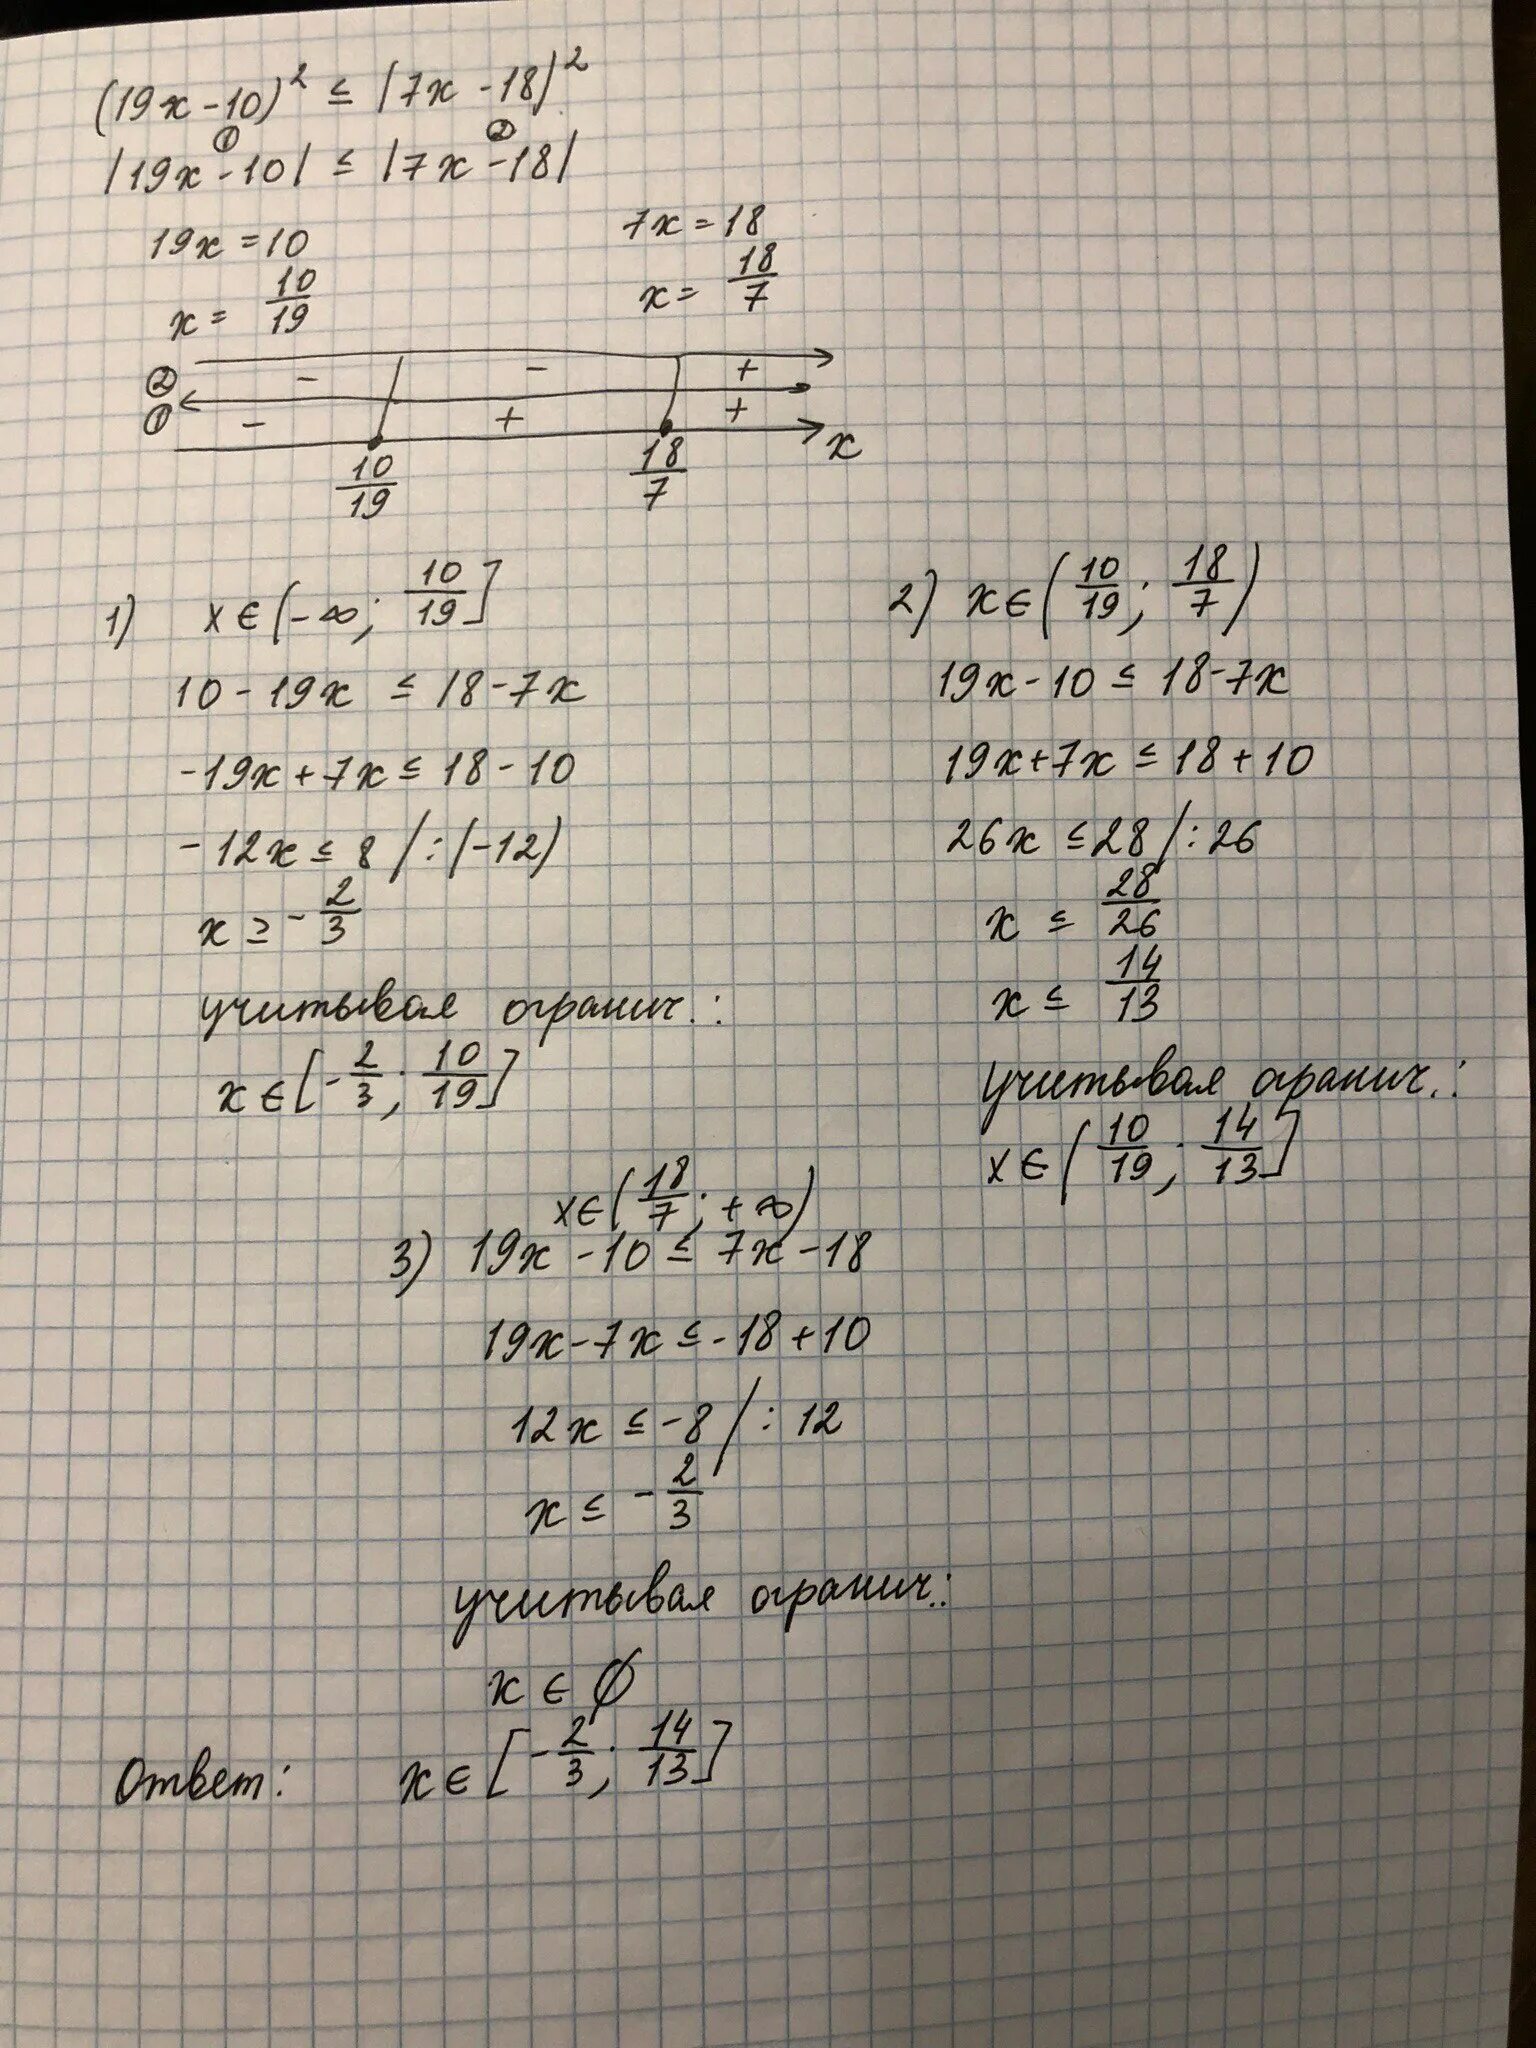 (19x-10)² ≤ |7x-18|²
① ②
|19x-10| ≤ |7x-18|
19x=10 7x=18
x= 10/19 x= 18/7
② - - +
① - + +
10/19 18/7 x
1) x∈(-∞; 10/19]
10-19x ≤ 18-7x
-19x+7x ≤ 18-10
-12x ≤ 8 /:(-12)
x ≥ -2/3
учитывая огранич.:
x∈[-2/3; 10/19]
2) x∈(10/19; 18/7)
19x-10 ≤ 18-7x
19x+7x ≤ 18+10
26x ≤ 28 /:26
x ≤ 28/26
x ≤ 14/13
учитывая огранич.:
x∈(10/19; 14/13]
x∈(18/7; +∞)
3) 19x-10 ≤ 7x-18
19x-7x ≤ -18+10
12x ≤ -8 /:12
x ≤ -2/3
учитывая огранич.:
x∈∅
Ответ: x∈[-2/3; 14/13]